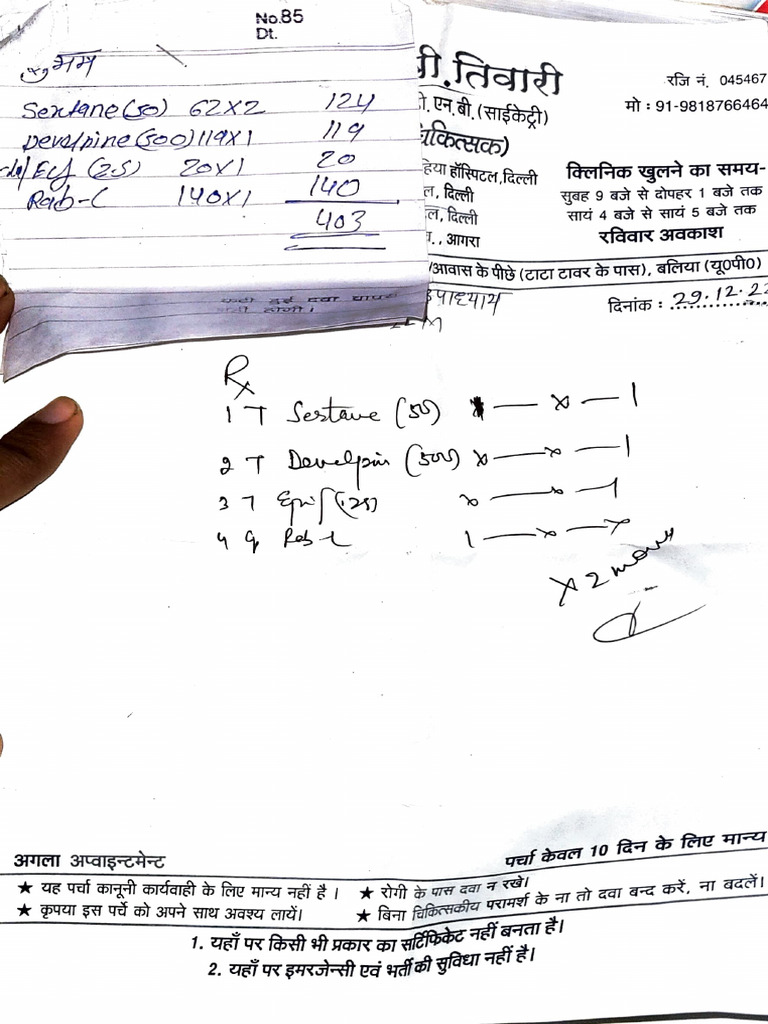 No.85
Dt.
शुभम
Sertane(50) 62X2 124
Develpine(500) 119X1 119
(25) 20X1 20
Rab-L 140X1 140
403
कटी हुई दवा वापस
नहीं होगी।
पी.तिवारी
रजि नं. 045467
मो : 91-9818766464
एन.बी.(साईकेट्री)
चिकित्सक)
हिया हॉस्पिटल,दिल्ली
ल, दिल्ली
ल, दिल्ली
., आगरा
क्लिनिक खुलने का समय-
सुबह 9 बजे से दोपहर 1 बजे तक
सायं 4 बजे से सायं 5 बजे तक
रविवार अवकाश
/आवास के पीछे (टाटा टावर के पास), बलिया (यू0पी0)
उपाध्याय
दिनांक : 29.12.22
Rx
1 T Sertane (50) x — x — 1
2 T Develpin (500) x — x — 1
3 T (.25) x — x — 1
4 Rab-L 1 — x — x
x 2
अगला अप्वाइन्टमेन्ट
पर्चा केवल 10 दिन के लिए मान्य
★ यह पर्चा कानूनी कार्यवाही के लिए मान्य नहीं है । ★ रोगी के पास दवा न रखे।
★ कृपया इस पर्चे को अपने साथ अवश्य लायें। ★ बिना चिकित्सकीय परामर्श के ना तो दवा बन्द करें, ना बदलें।
1. यहाँ पर किसी भी प्रकार का सर्टिफिकेट नहीं बनता है।
2. यहाँ पर इमरजेन्सी एवं भर्ती की सुविधा नहीं है।